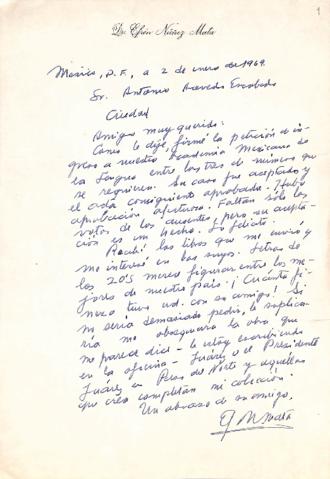 1
Dr. Efrén Núñez Mata
México, D.F., a 2 de enero de 1964.
Sr. Antonio Acevedo Escobedo
Ciudad
Amigo muy querido:
Como le dije, firmé la petición de in-
greso a nuestra Academia Mexicana de
la Lengua entre los tres de número que
se requieren. Su caso fue aceptado y
el acta consiguiente aprobada. Hubo
aprobación afectuosa. Faltan sólo los
votos de los ausentes, pero su acepta-
ción es un hecho. Lo felicito.
Recibí los libros que me envió y
me interesé en los suyos. Letras de
los 20'S merece figurar entre los me-
jores de nuestro país. ¡Cuánta fi-
neza tuvo ud. con su amigo! Si
no sería demasiado pedir, le suplica-
ría me obsequiara la obra que
me parece dice - le estoy escribiendo
en la oficina - Juárez o el Presidente
Juárez en Paso del Norte y aquellas
que crea completan mi colección.
Un abrazo de su amigo.